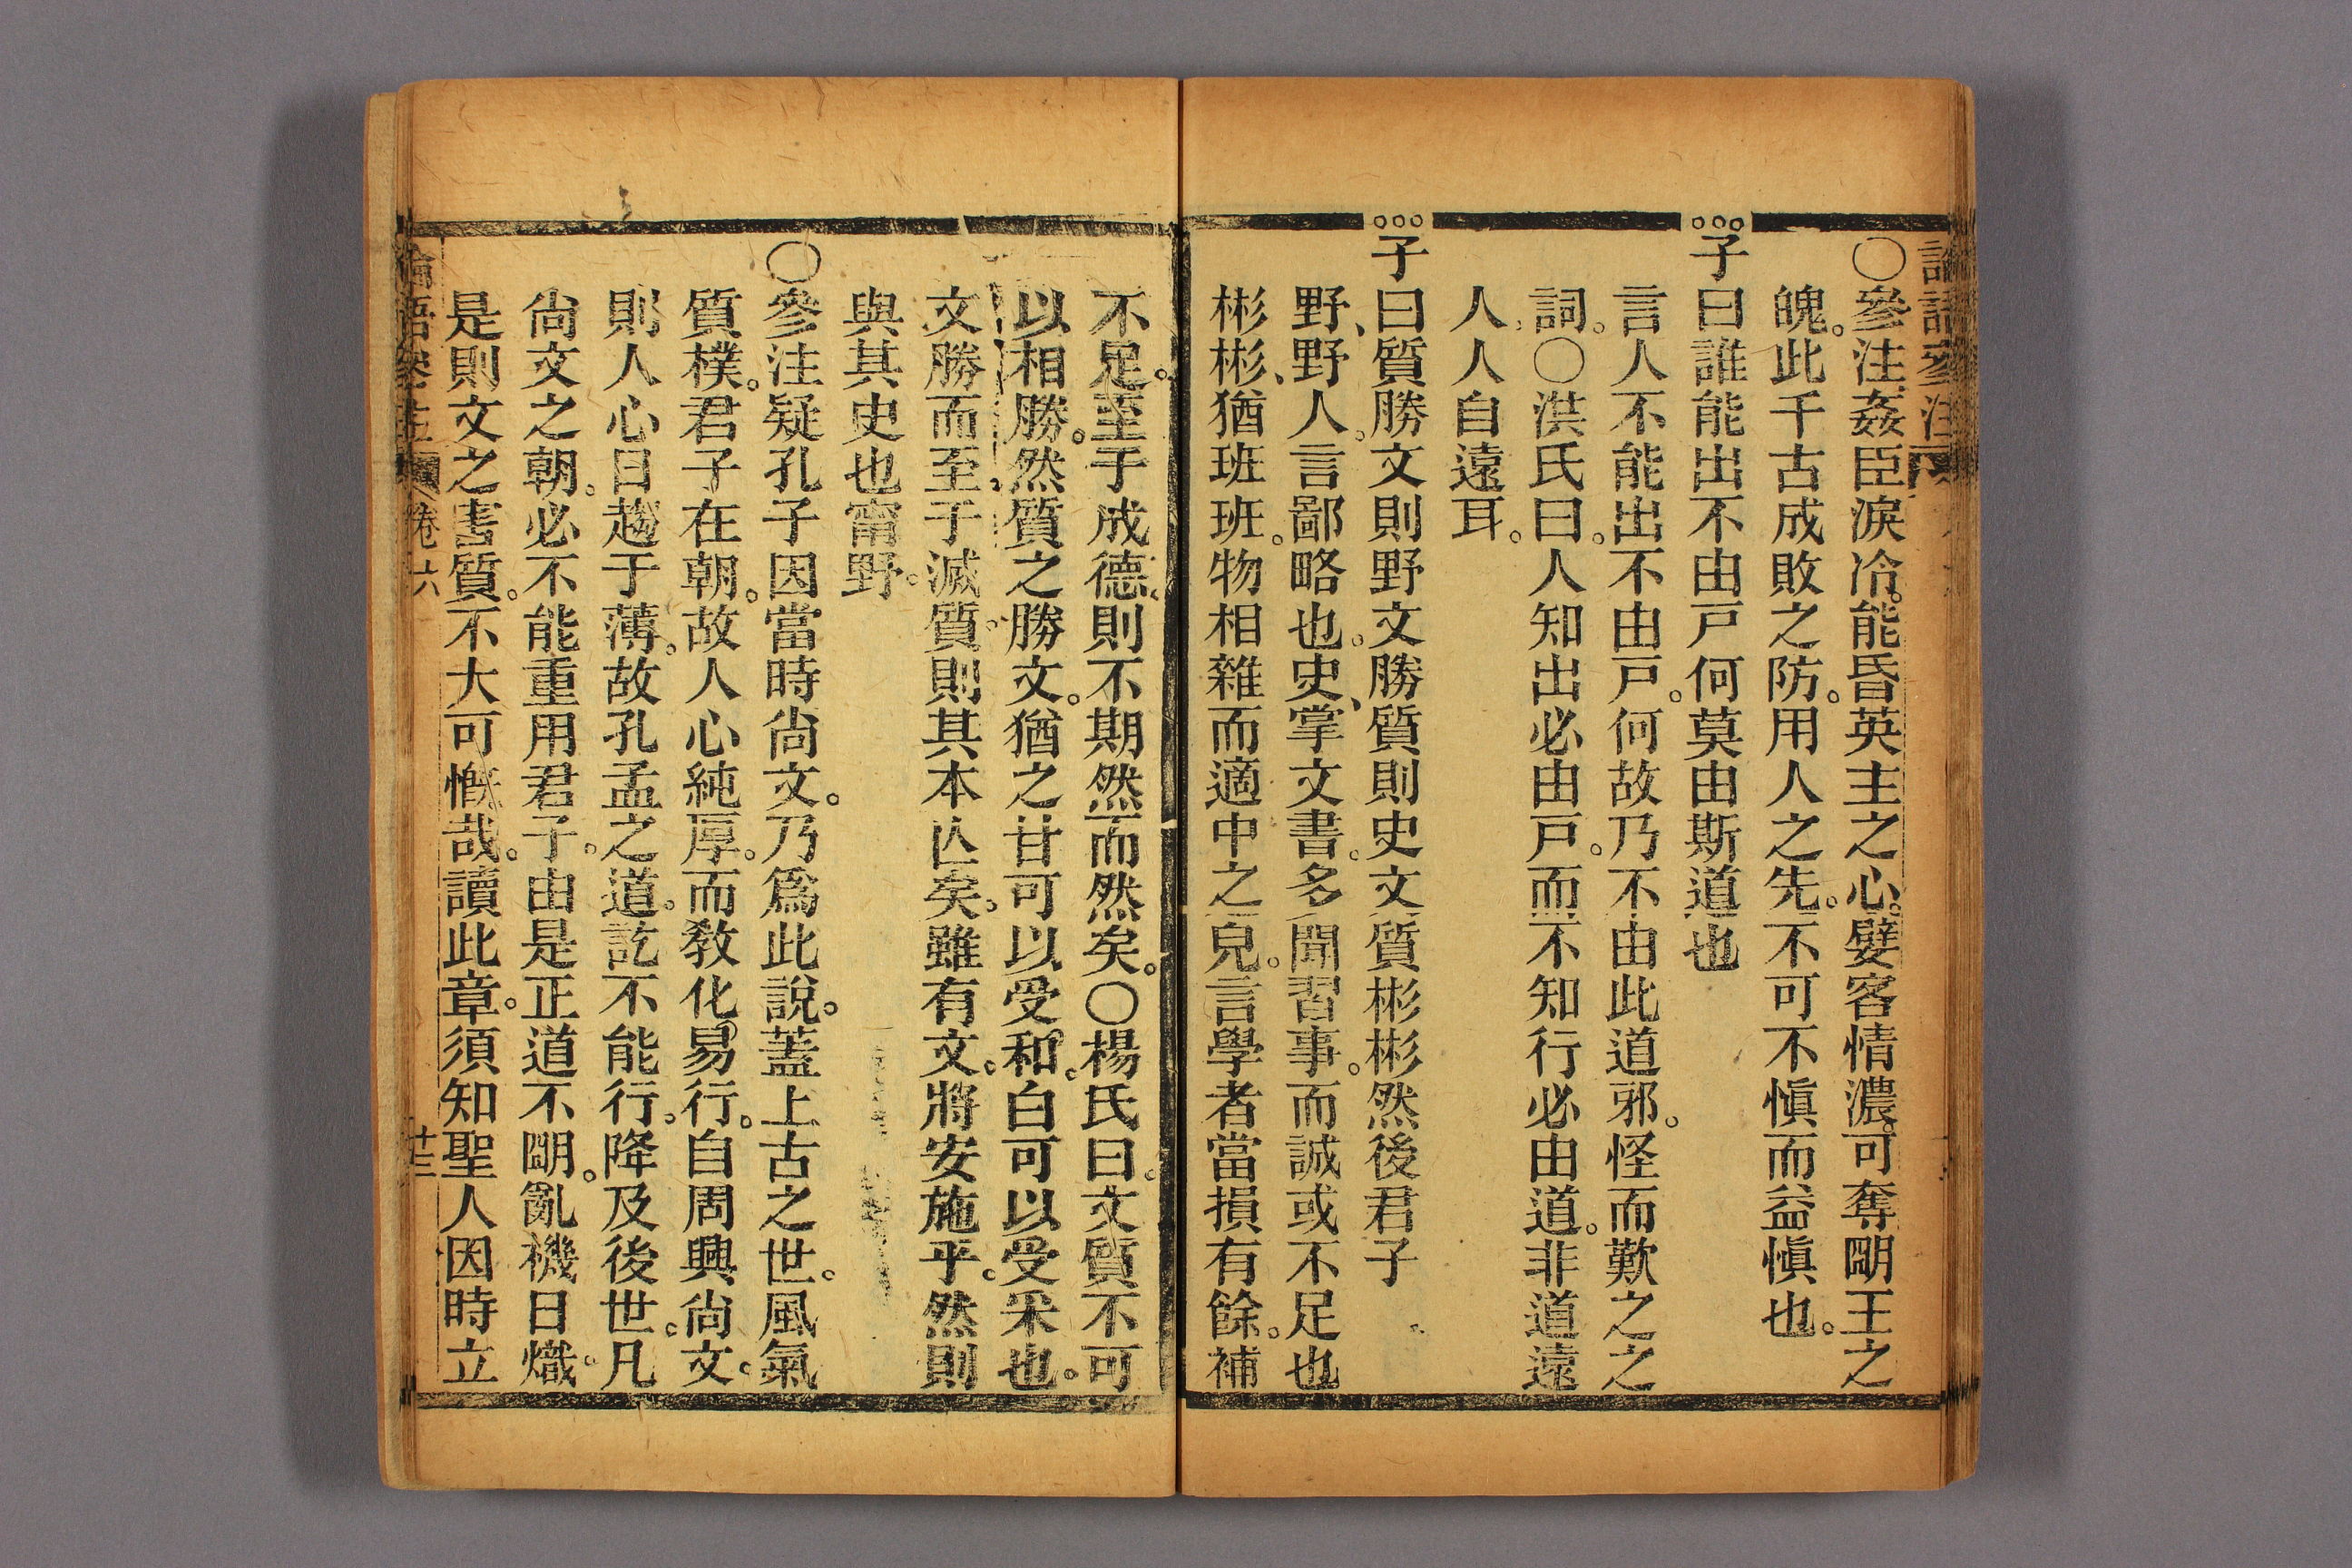 論語參注
〇參注姦臣淚冷。能昏英主之心。嬖客情濃。可奪剛王之
魄。此千古成敗之防。用人之先。不可不慎而益慎也。
子曰誰能出不由戸何莫由斯道也
言人不能出不由戸。何故乃不由此道邪。怪而歎之之
詞。〇洪氏曰。人知出必由戸。而不知行必由道。非道遠
人。人自遠耳。
子曰質勝文則野文勝質則史文質彬彬然後君子
野、野人。言鄙略也。史、掌文書。多聞習事。而誠或不足也
彬彬、猶班班。物相雜而適中之皃。言學者當損有餘。補
不足。至于成德。則不期然而然矣。〇楊氏曰。文質不可
以相勝。然質之勝文。猶之甘可以受和。白可以受采也。
文勝而至于滅質。則其本亾矣。雖有文。將安施乎。然則
與其史也甯野。
〇參注疑孔子因當時尚文。乃爲此說。蓋上古之世。風氣
質樸。君子在朝。故人心純厚。而敎化易行。自周興尚文。
則人心日趨于薄。故孔孟之道。訖不能行。降及後世。凡
尚文之朝。必不能重用君子。由是正道不朙。亂禨日熾。
是則文之害質。不大可慨哉。讀此章。須知聖人因時立
論語參注 卷六 十三